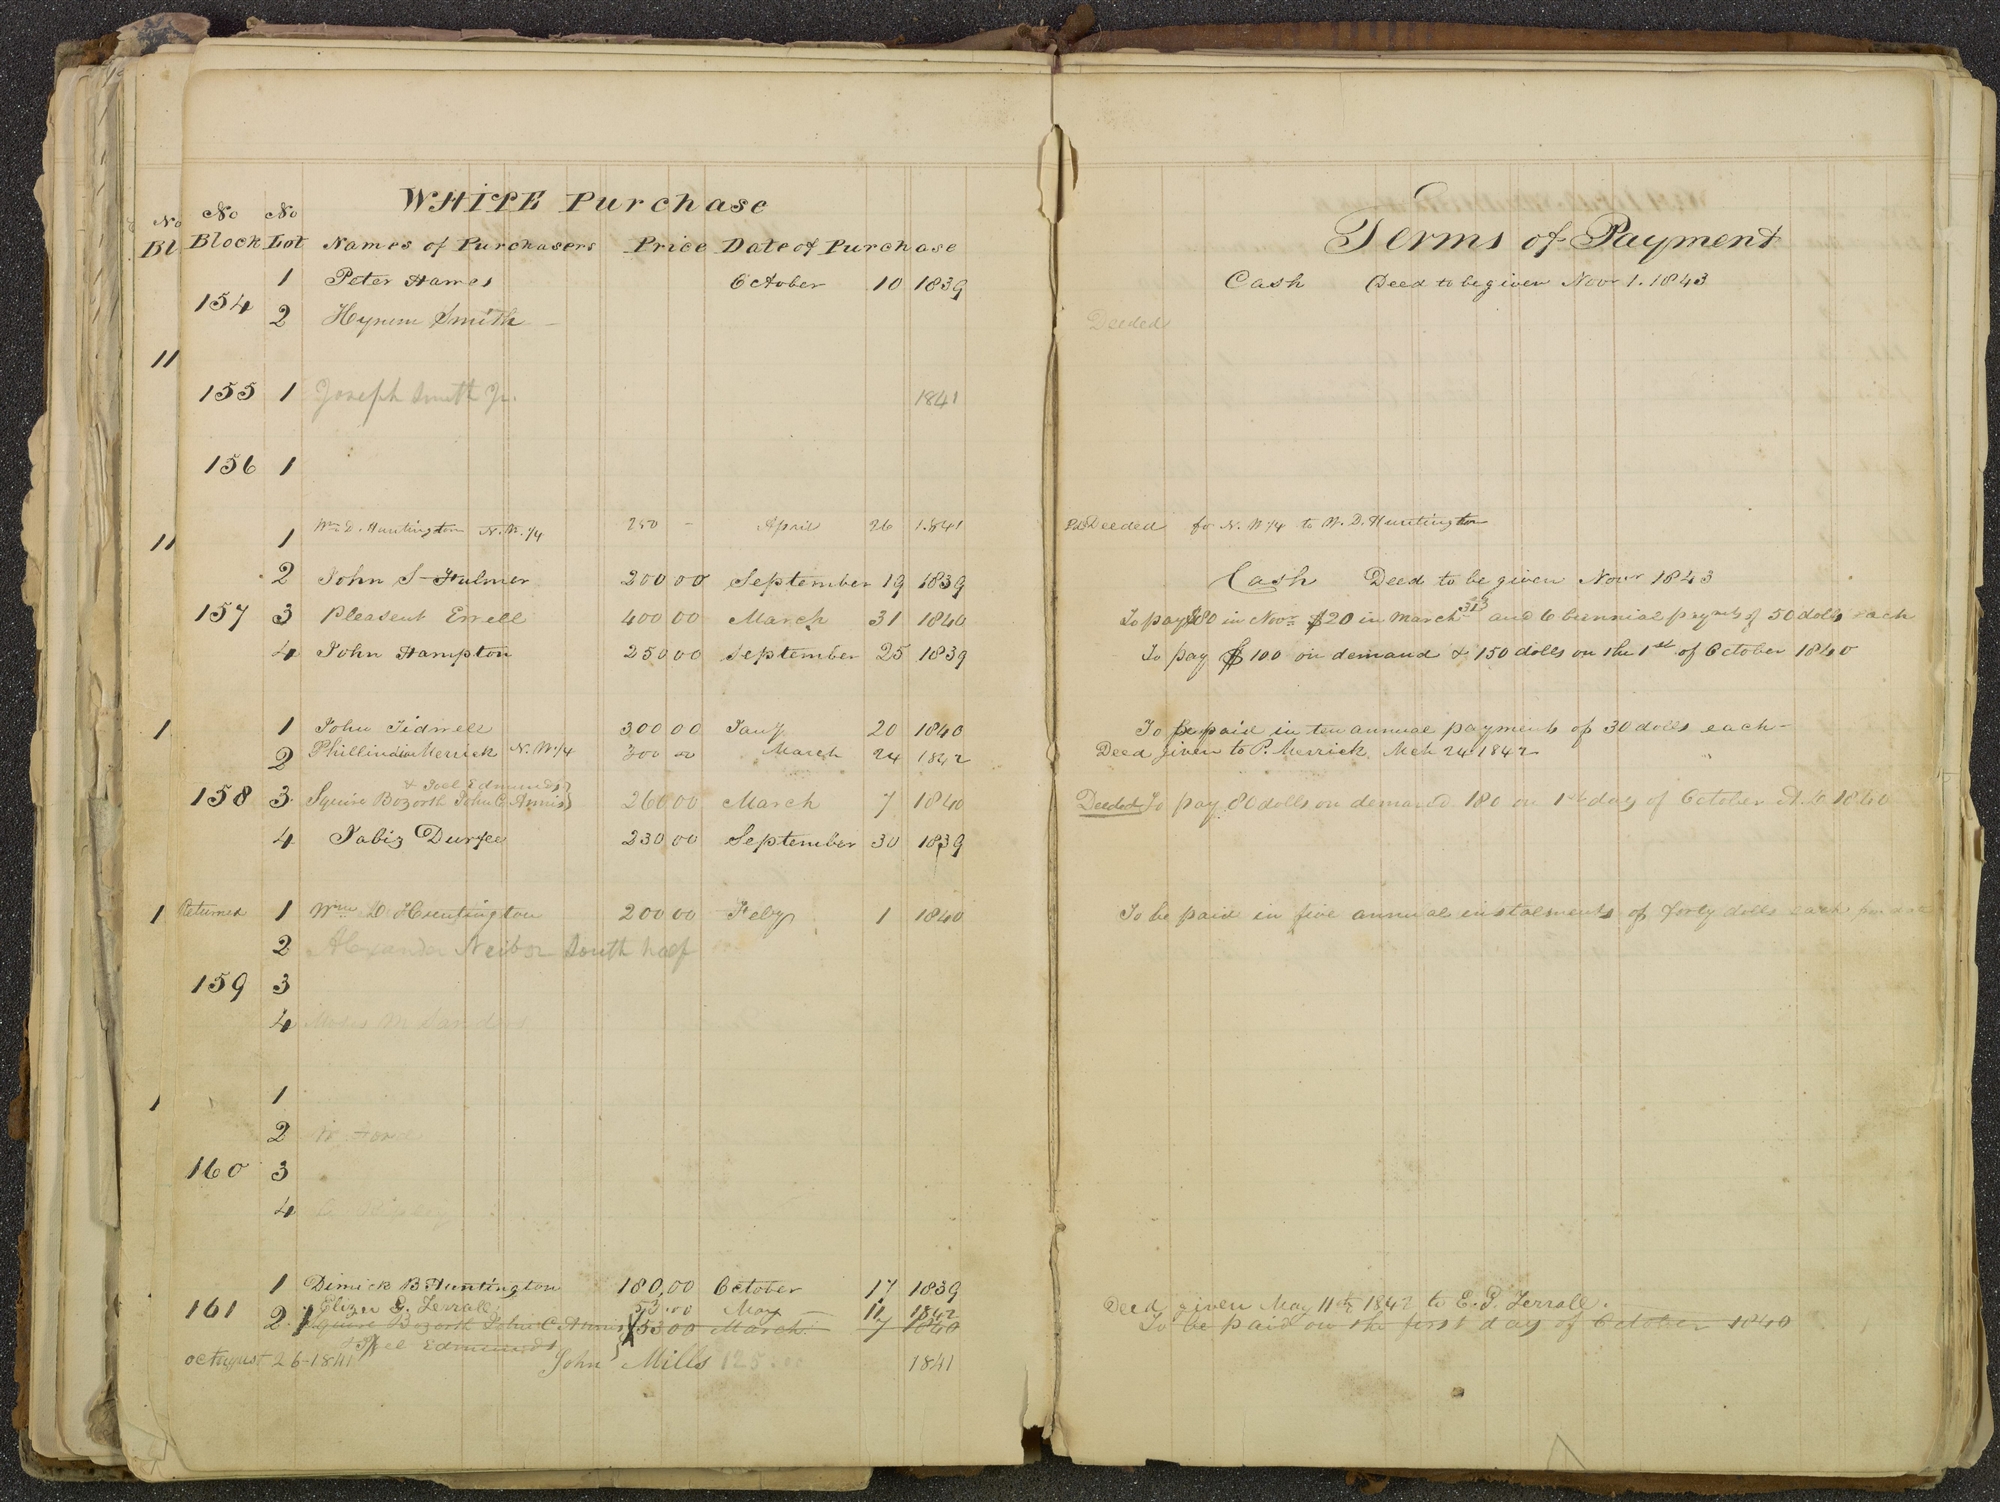 WHITE Purchase
No No
No Block Lot Names of Purchasers Price Date of Purchase Terms of Payment
Bl
1 Peter Hawes October 10 1839 Cash Deed to be given Novr 1. 1843
154 2 Hyrum Smith — Deeded
11
155 1 Joseph Smith Jr. 1841
156 1
11 1 Wm D. Huntington N.W. 1/4 250 - April 26 1841 Deeded for N.W 1/4 to W. D. Huntington
2 John S Fulmer 200 00 September 19 1839 Cash Deed to be given Novr 1843
157 3 Pleasent Errell 400 00 March 31 1840 To pay $80 in Novr $20 in March and 6 biennial paymts of 50 dolls each
4 John Hampton 250 00 September 25 1839 To pay $100 on demand & 150 dolls on the 1st of October 1840
1 1 John Tidwell 300 00 Jany 20 1840 To be paid in ten annual payments of 30 dolls each—
2 Phillinda Merrick N.W. 1/4 300 00 March 24 1842 Deed given to P. Merrick Mch 24 1842
& Joel Edmunds
158 3 Squire Bozorth John C. Annis 260 00 March 7 1840 Deeded To pay 80 dolls on demand 180 on 1st day of October A.D 1840
4 Jabiz Durfee 230 00 September 30 1839
1 Returned 1 Wm D Huntington 200 00 Feby 1 1840 To be paid in five annual instalments of forty dolls each
2 Alexander Neibor South half
159 3
4 Moses M Sanders
1 1
2
160 3
4 A Ripley
1 Dimick B Huntington 180,00 October 17 1839
Eliza G. Terrall 53.00 May — 11 1842 Deed given May 11th 1842 to E. G. Terrall.
161 2 Squire Bozorth John C. Annis 53 00 March 7 1840 To be paid on the first day of October 1840
& Joel Edmunds
26-1841 John Mills 125.00 1841